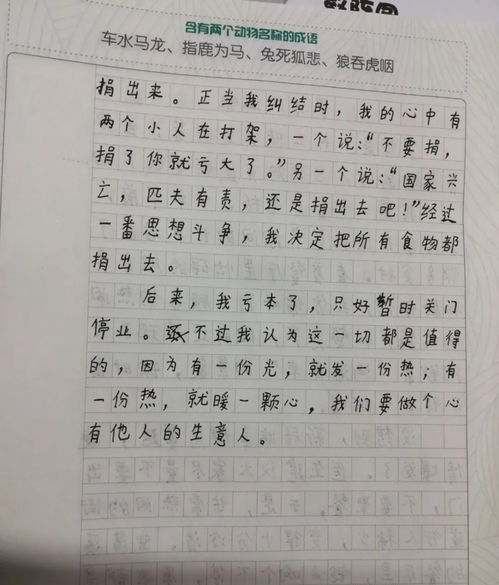 含有两个动物名称的成语
车水马龙、指鹿为马、兔死狐悲、狼吞虎咽
捐出来。正当我纠结时，我的心中有
两个小人在打架，一个说：“不要捐，
捐了你就亏大了。”另一个说：“国家兴
亡，匹夫有责，还是捐出去吧！”经过
一番思想斗争，我决定把所有食物都
捐出去。
后来，我亏本了，只好暂时关门
停业。不过我认为这一切都是值得
的，因为有一份光，就发一份热；有
一份热，就暖一颗心，我们要做个心
有他人的生意人。